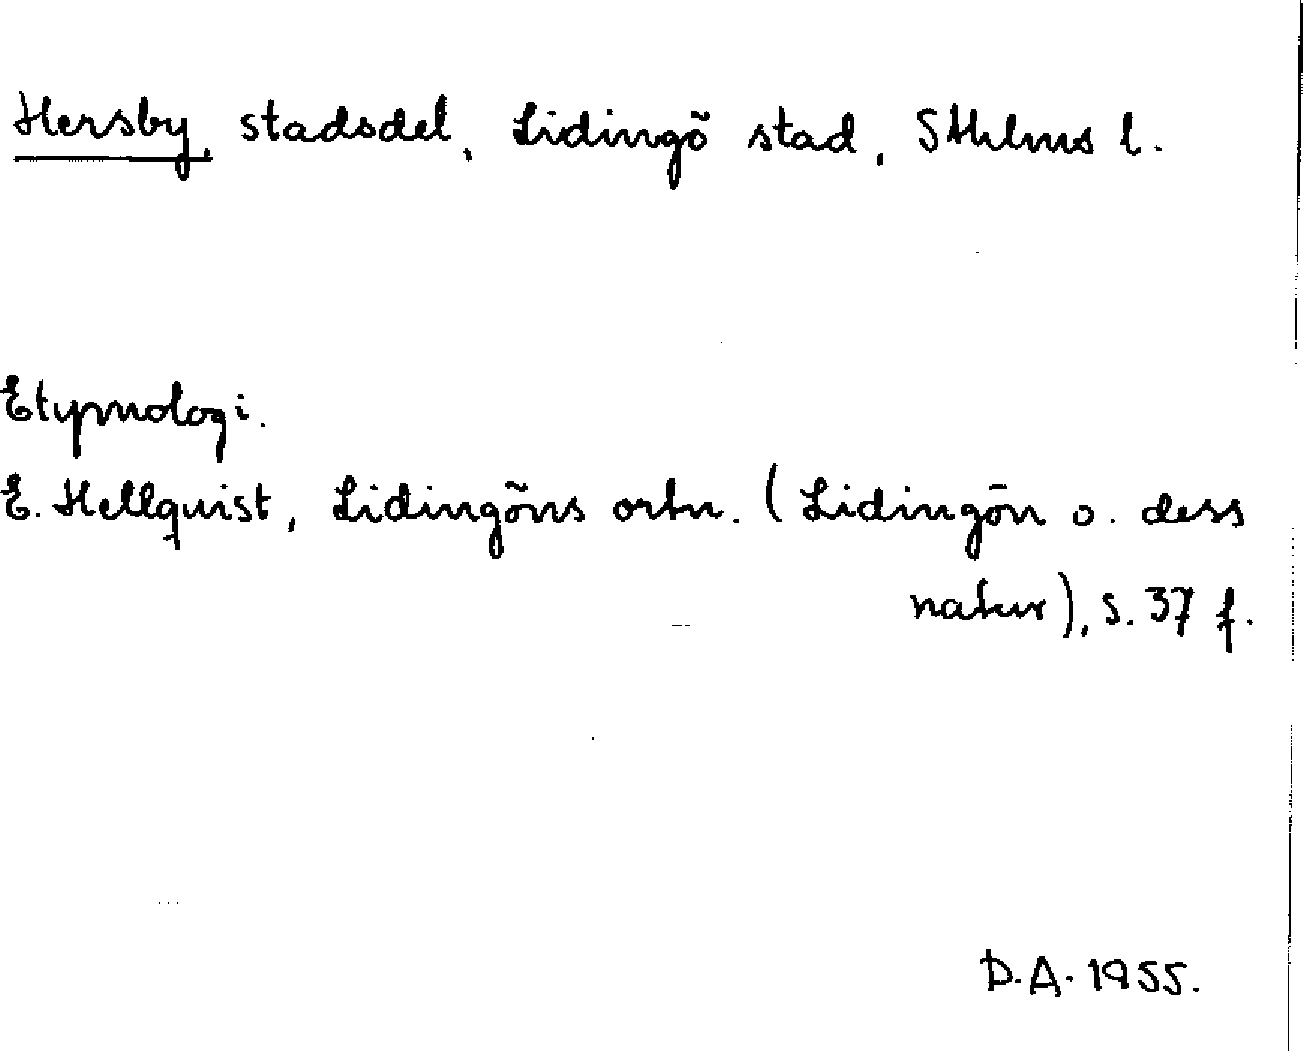 Hersby, stadsdel, Lidingö stad, Sthlms l.
Etymologi.
E. Hellquist, Lidingöns ortn. (Lidingön o. dess
natur), s. 37 f.
D.A. 1955.